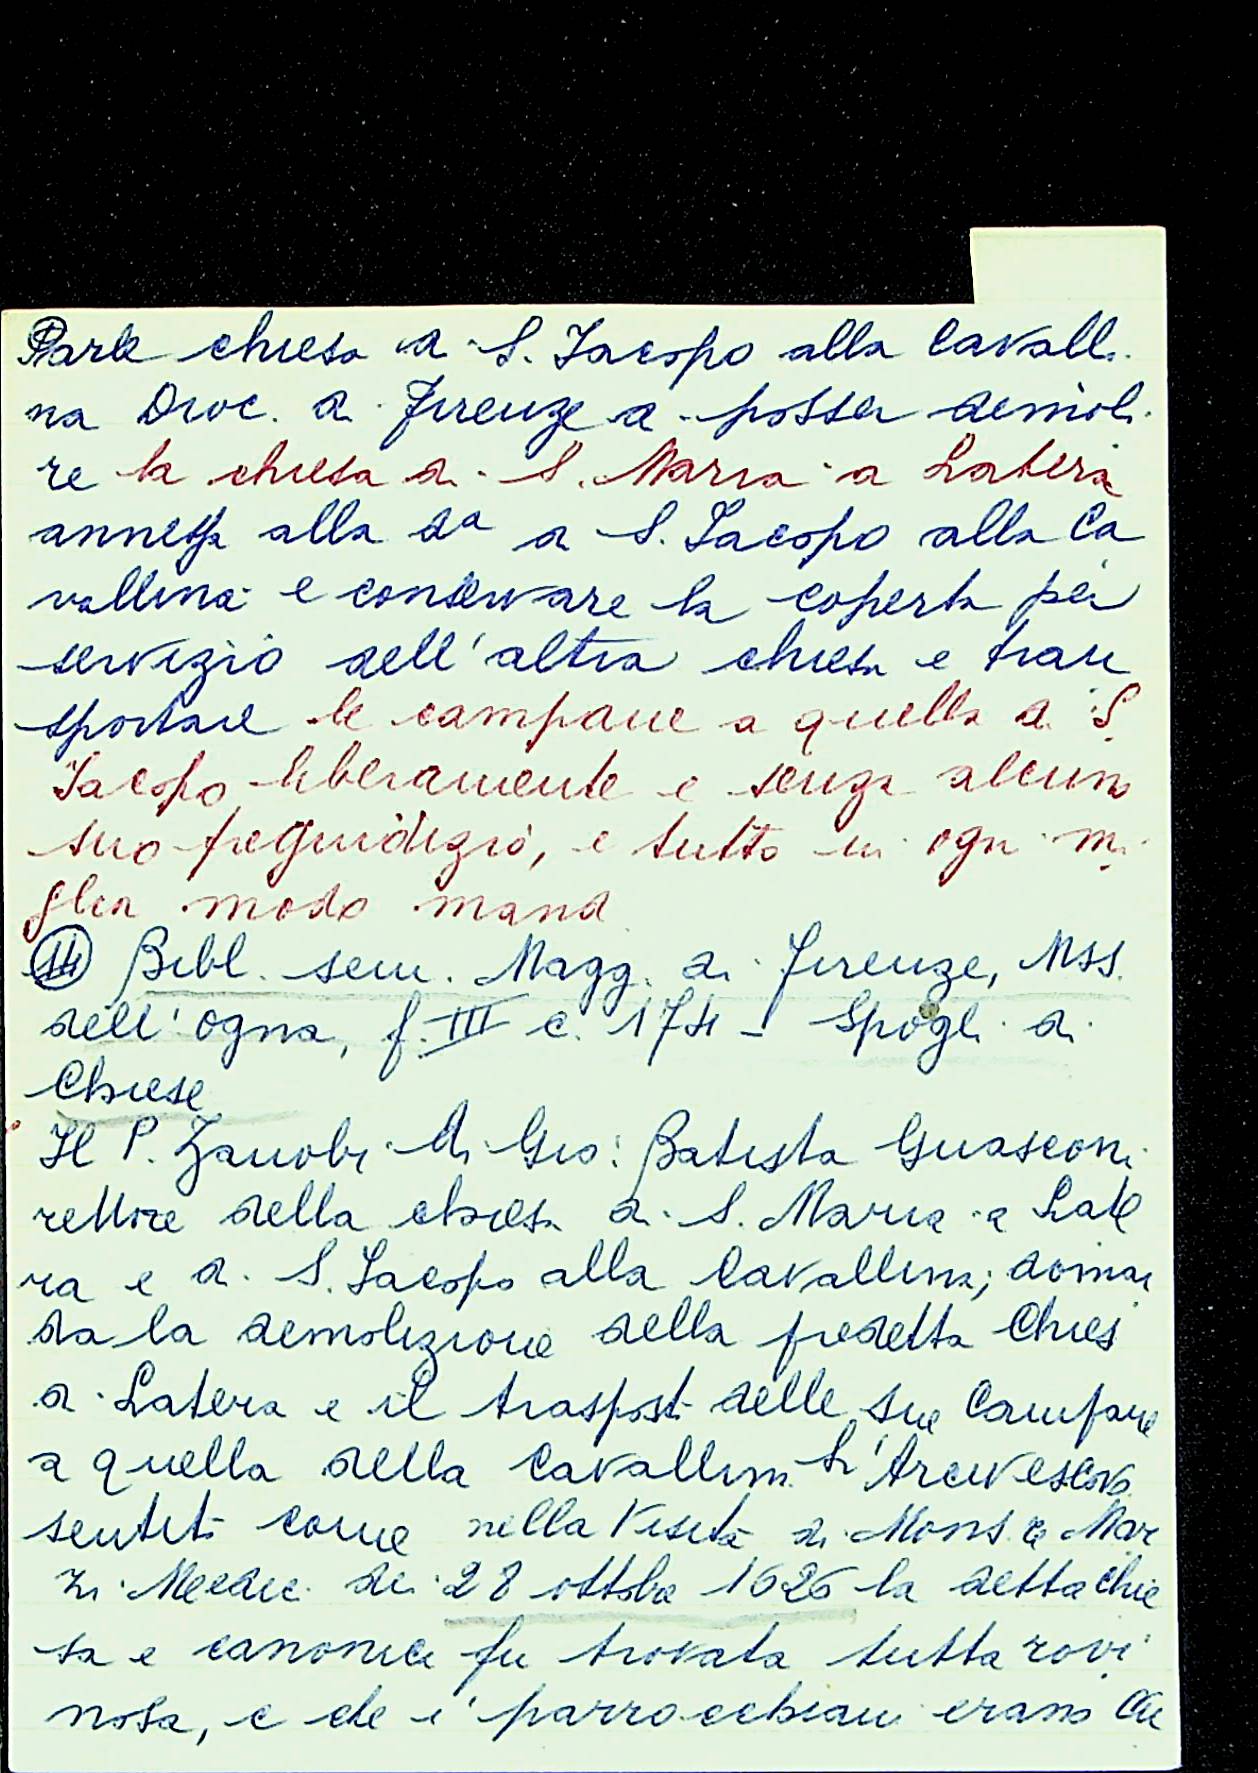 Parle chiesa di S. Jacopo alla Cavalli
na Dioc. di Firenze di poster demoli
re la chiesa di S. Maria a Latera
annessa alla dª di S. Jacopo alla Ca
vallina e conservare la coperta per
servizio dell'altra chiesa e tran
sportare le campane a quella di S.
Jacopo liberamente e senza alcuno
suo pregiudizio, e tutto in ogni mi
glior modo
Bibl. sem. Magg. di Firenze, Mss.
dell'Ogna, f. III c. 174 - Spogli di
Chiese
Il P. Zanobi di Gio: Batista Guasconi
rettore della chiesa di S. Maria a Late
ra e di S. Jacopo alla Cavallina; doman
da la demolizione della predetta Chies
di Latera e il trasposto delle sue Campane
a quella della Cavallina L'Arcivescovo
sentito come nella Visita di Mons. e Mar
zi Medici di 28 ottobre 1626 la detta chie
sa e canonica fu trovata tutta rovi
nosa, e che i parrocchiani erano